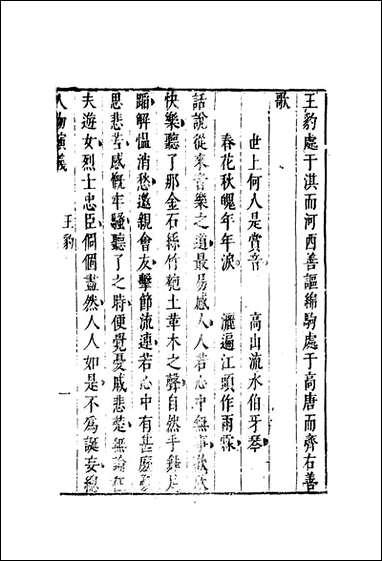 王豹處于淇而河西善謳綿駒處于高唐而齊右善
歌
世上何人是賞音 高山流水伯牙琴
春花秋魄年年淚 灑遍江頭作雨霖
話說從來音樂之道最易感人人若心中無事歡欣
快樂聽了那金石絲竹匏土革木之聲自然手舞足
蹈解慍消愁邀親會友擊節流連若心中有甚麼
思悲苦感慨牢騷聽了之時便覺憂戚悲楚無論
夫遊女烈士忠臣個個盡然人人如是不為誕妄總
人物演義 王豹 一